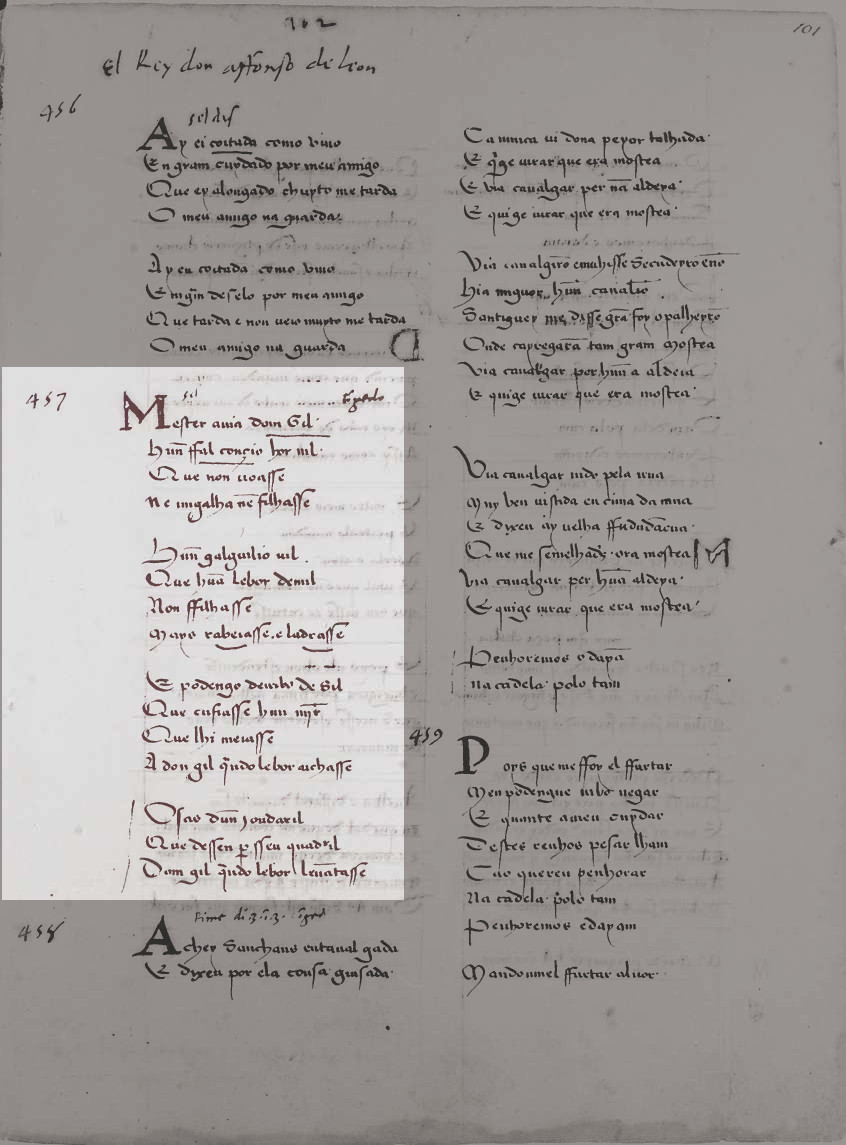 102
101
El Rey don affonso de leon
456
A y ei coitada como vivo
En gram cuydado por meu amigo
Que ey alongado muyto me tarda
O meu amigo na guarda
Ay eu coitada como vivo
En gram desejo por meu amigo
Que tarda e non vejo muyto me tarda
O meu amigo na guarda
457
Mester avia dom Gil
Hun ffal conçio bor nil
Que non voasse
Ne migalha nẽ filhasse
Hun galguilio vil
Que hũa lebor de mil
Non ffilhasse
Mays rabeiasse e ladrasse
E podengo de riba de Sil
Que cufiasse huun
Que lhi meiasse
A don gil q̃ndo lebor achasse
Osas dun Joudaril
Que dessen p sseu quadril
Dom gil q̃ndo lebor levãtasse
458
Achey Sanchans encaval gada
E dixeu por ela cousa guisada
Ca nunca vi dona peyor talhada
E q̃ge jurar que era mostea
E via cavalgar per nũa aldeya
E quige jurar que era mostea
Via cavalgar
Santiguey me disse grã foy o palheyro
Onde carregarã tam gram mostea
Via cavalgar por hũa aldeia
E quige jurar que era mostea
Via cavalgar indo pela rua
Muy ben vistida en cima da mua
E dixeu ay velha ffududãcua
Que me semelhades ora mostea
Via cavalgar per hũa aldeya
E quige jurar que era mostea
Penhoremos o dayã
na cadela polo tam
459
Poys que meffor el ffurtar
Meu podengue negar
E quante ameu cuydar
Destes penhos pesar lham
Cao quereu penhorar
Na cadela polo tam
Penhoremos e dayam
Mandoumel ffurtar alvor